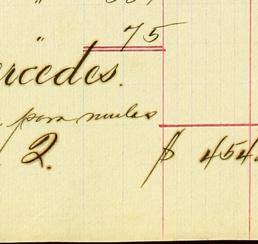 "
" 75
ercedes.
para mulas
2. $ 454